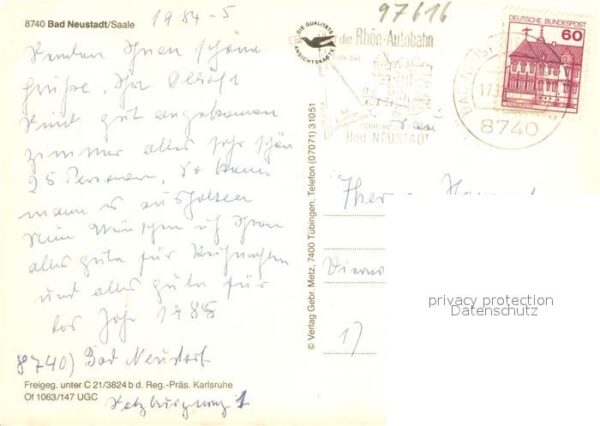 8740 Bad Neustadt/Saale
1984-5
97616
DIE QUALITÄTS
ANSICHTSKARTE
die Rhön-Autobahn
Bad NEUSTADT
17.1
8740
DEUTSCHE BUNDESPOST
60
schöne
Grüße. Ihr
sind gut angekommen
Zimmer alles sehr schön
25 Personen, so kann
mann es aushalten
Nun Wünschen ich Ihnen
alles gute für Weihnachten
und alles gute für
das Jahr 1985
8740) Bad Neustadt
1
17
© Verlag Gebr. Metz, 7400 Tübingen, Telefon (07071) 31051
Freigeg. unter C 21/3824 b d. Reg.-Präs. Karlsruhe
Of 1063/147 UGC
privacy protection
Datenschutz